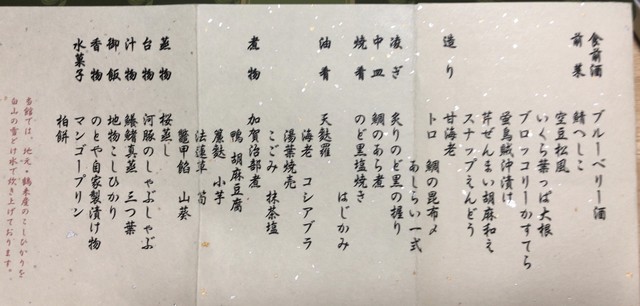 食前酒 ブルーベリー酒
前菜 鯖へしこ
空豆松風
いくら葉っぱ大根
ブロッコリーかすてら
蛍烏賊沖漬け
芹ぜんまい胡麻和え
スナップえんどう
甘海老
造り トロ 鯛の昆布〆
あしらい一式
凌ぎ 炙りのど黒の握り
中皿 鯛のあら煮
焼肴 のど黒塩焼き
はじかみ
油肴 天麩羅
海老 コシアブラ
湯葉焼売
こごみ 抹茶塩
煮物 加賀治部煮
鴨 胡麻豆腐
簾麩 小芋
法蓮草 筍
鼈甲餡 山葵
蒸物 桜蒸し
台物 河豚のしゃぶしゃぶ
汁物 鱶鰭真蒸 三つ葉
御飯 地物こしひかり
香物 のとや自家製漬け物
水菓子 マンゴープリン
柏餅
当館では、地元・鶴来産のこしひかりを
白山の雪どけ水で炊き上げております。